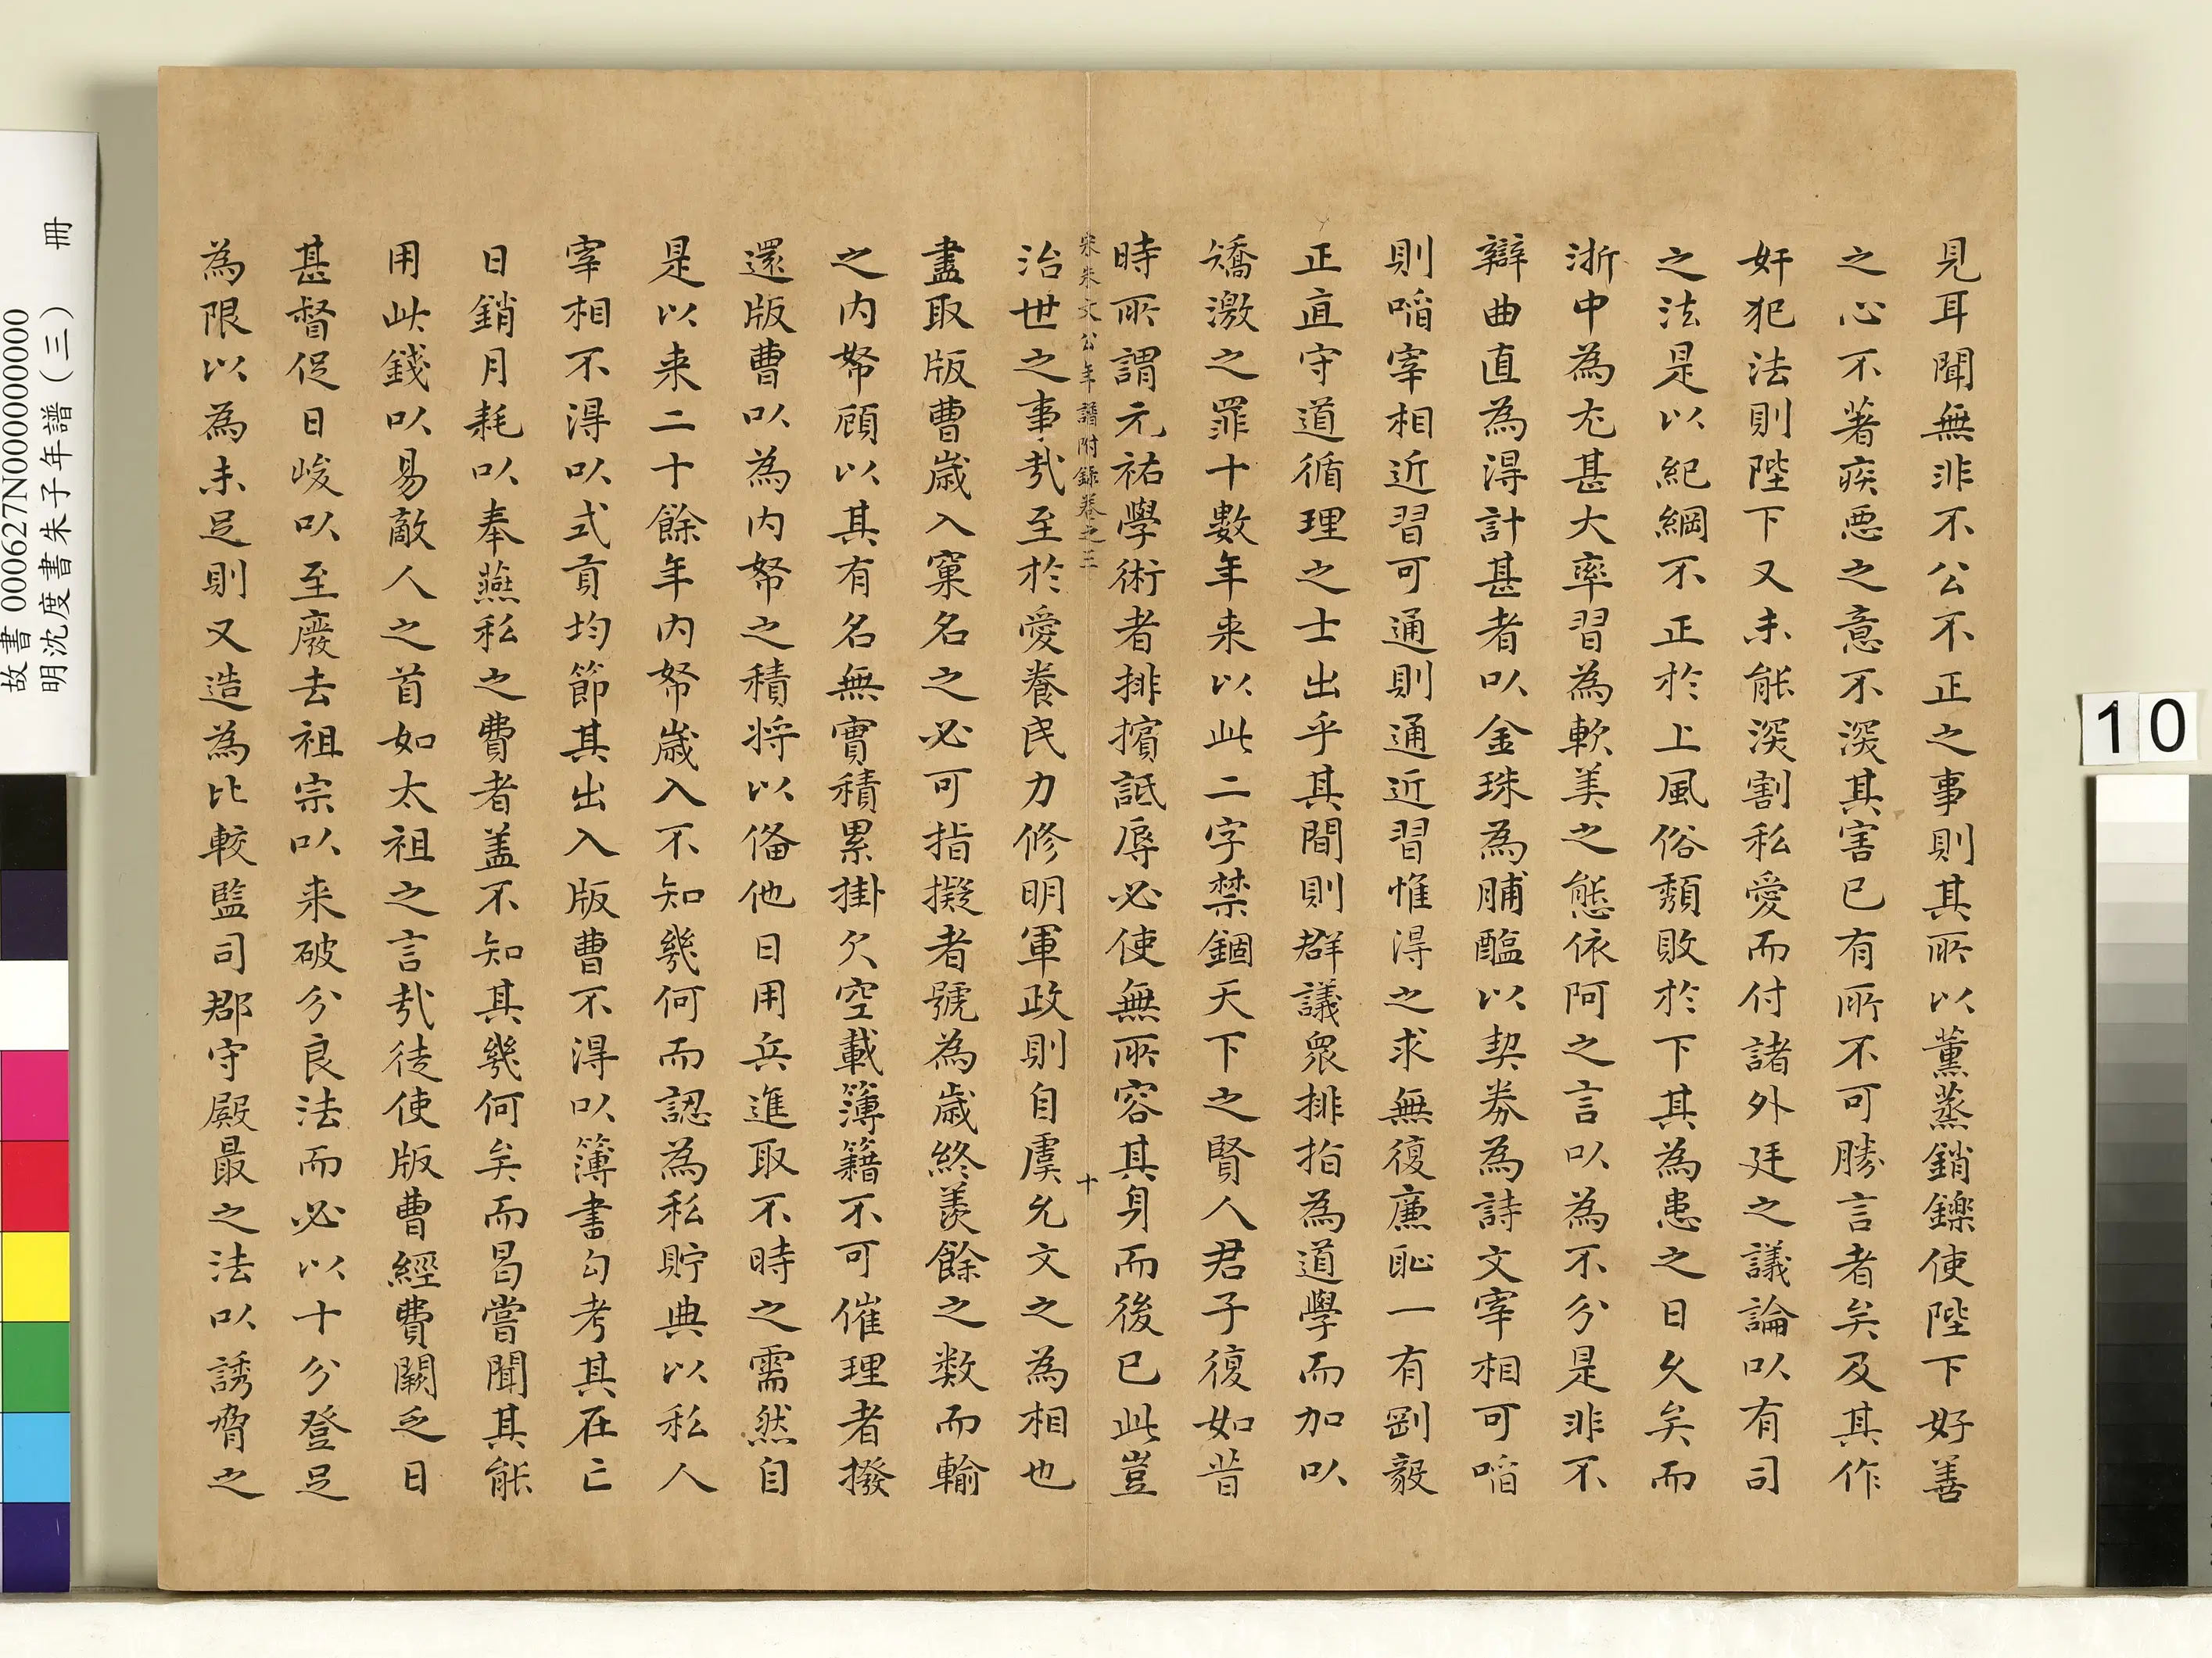 見耳聞無非不公不正之事則其所以薰蒸銷鑠使陛下好善
之心不著疾惡之意不深其害已有所不可勝言者矣及其作
奸犯法則陛下又未能深割私愛而付諸外廷之議論以有司
之法是以紀綱不正於上風俗頹敗於下其為患之日久矣而
浙中為尤甚大率習為軟美之態依阿之言以為不分是非不
辯曲直為得計甚者以金珠為脯醢以契券為詩文宰相可啗
則啗宰相近習可通則通近習惟得之求無復廉恥一有剛毅
正直守道循理之士出乎其間則群議衆排指為道學而加以
矯激之罪十數年来以此二字禁錮天下之賢人君子復如昔
時所謂元祐學術者排擯詆辱必使無所容其身而後已此豈
宋朱文公年譜附錄卷之三
十
治世之事哉至於愛養民力修明軍政則自虞允文之為相也
盡取版曹歲入窠名之必可指擬者號為歲終羨餘之数而輸
之内帑顧以其有名無實積累掛欠空載簿籍不可催理者撥
還版曹以為内帑之積将以俻他日用兵進取不時之需然自
是以来二十餘年内帑歲入不知幾何而認為私貯典以私人
宰相不得以式貢均節其出入版曹不得以簿書勾考其在亡
日銷月耗以奉燕私之費者盖不知其幾何矣而曷嘗聞其能
用此錢以易敵人之首如太祖之言哉徒使版曹經費闕乏日
甚督促日峻以至廢去祖宗以来破分良法而必以十分登足
為限以為未足則又造為比較監司郡守殿最之法以誘脅之
10
故書 000627N000000000
明沈度書朱子年譜（三） 冊